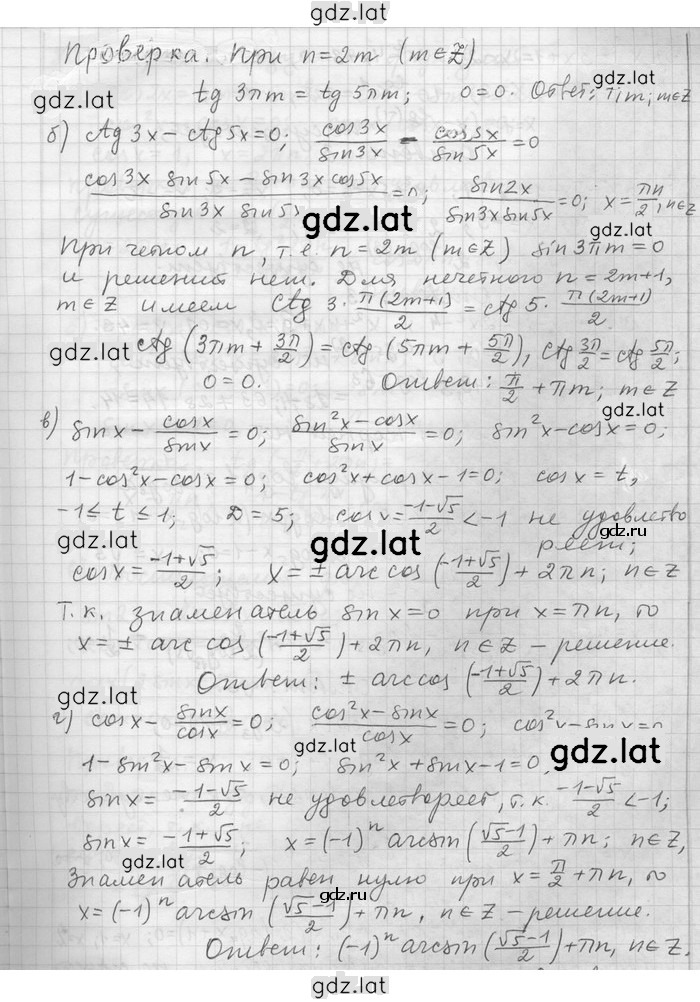 gdz.lat
Проверка. При n=2m (m∈Z)
gdz.lat
tg 3πm = tg 5πm; 0=0. Ответ: πm, m∈Z
gdz.lat
б) ctg 3x − ctg 5x=0; cos3x/sin3x − cos5x/sin5x =0
(cos3x sin5x − sin3x cos5x)/(sin3x sin5x) =0; sin2x/(sin3x sin5x) =0; x= πn/2, n∈Z
gdz.lat
При четном n, т.е. n=2m (m∈Z) sin3πm=0
и решений нет. Для нечетного n=2m+1,
m∈Z имеем ctg 3·π(2m+1)/2 = ctg 5·π(2m+1)/2
gdz.lat
ctg (3πm + 3π/2) = ctg (5πm + 5π/2), ctg 3π/2 = ctg 5π/2;
0=0. Ответ: π/2 + πm; m∈Z
gdz.lat
в) sinx − cosx/sinx =0; (sin²x−cosx)/sinx =0; sin²x−cosx=0;
1−cos²x−cosx=0; cos²x+cosx−1=0; cosx=t,
−1≤t≤1; D=5; cosx= (−1−√5)/2 <−1 не удовлетво
gdz.lat
gdz.ru
реет;
cosx= (−1+√5)/2; x=± arccos ((−1+√5)/2)+2πn; n∈Z
Т.к. знаменатель sinx=0 при x=πn, то
x=± arccos ((−1+√5)/2)+2πn, n∈Z − решение.
gdz.lat
Ответ: ± arccos ((−1+√5)/2)+2πn.
г) cosx− sinx/cosx =0; (cos²x−sinx)/cosx =0; cos²x−sinx=0
gdz.lat
1−sin²x−sinx=0; sin²x+sinx−1=0,
sinx= (−1−√5)/2 не удовлетворяет, т.к. (−1−√5)/2 <−1;
sinx= (−1+√5)/2; x=(−1)ⁿ arcsin ((√5−1)/2)+πn; n∈Z,
gdz.lat
gdz.ru
Знаменатель равен нулю при x= π/2 +πn, то
x=(−1)ⁿ arcsin ((√5−1)/2)+πn, n∈Z − решение.
Ответ: (−1)ⁿ arcsin ((√5−1)/2)+πn, n∈Z.
gdz.lat